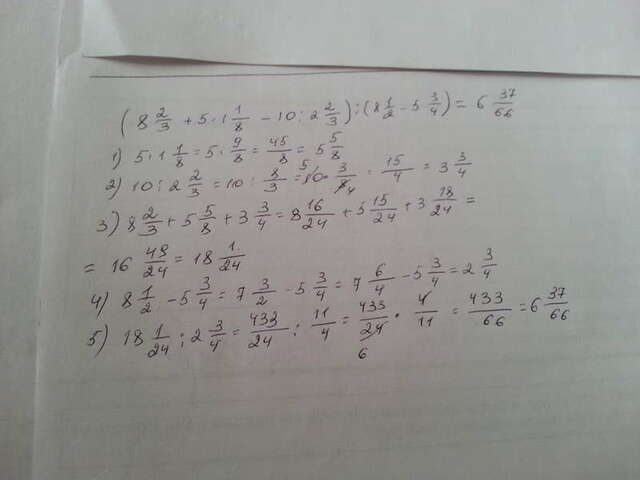 (8 2/3 + 5 · 1 1/8 − 10 : 2 2/3) : (8 1/2 − 5 3/4) = 6 37/66
1) 5 · 1 1/8 = 5 · 9/8 = 45/8 = 5 5/8
2) 10 : 2 2/3 = 10 : 8/3 = 5 10 · 3/8 4 = 15/4 = 3 3/4
3) 8 2/3 + 5 5/8 + 3 3/4 = 8 16/24 + 5 15/24 + 3 18/24 =
= 16 49/24 = 18 1/24
4) 8 1/2 − 5 3/4 = 7 3/2 − 5 3/4 = 7 6/4 − 5 3/4 = 2 3/4
5) 18 1/24 : 2 3/4 = 433/24 : 11/4 = 433/24 6 · 4/11 = 433/66 = 6 37/66